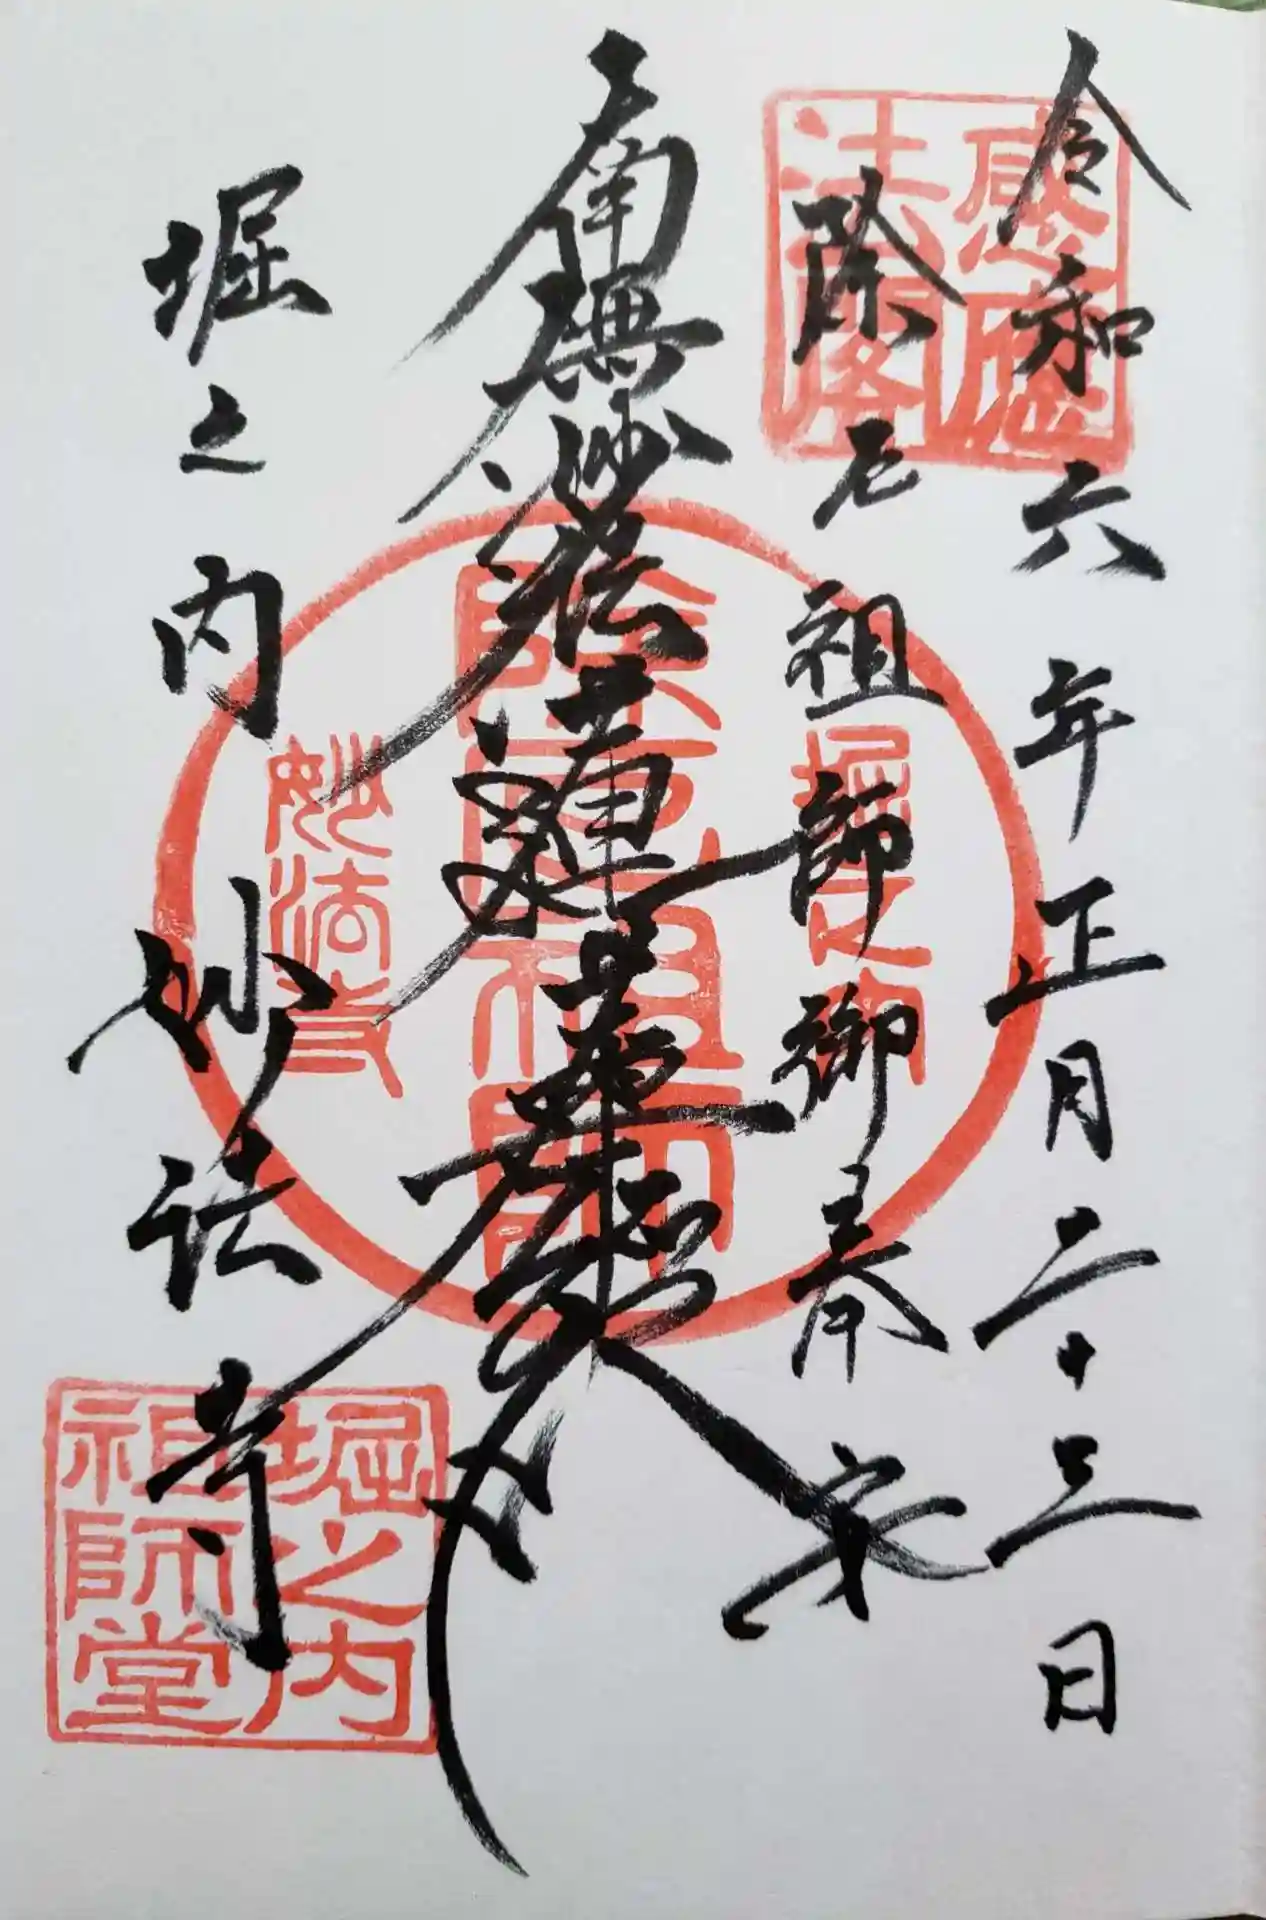 令和六年正月二十三日
感應
法閣
除厄祖師御奉安
堀之内
南無妙法蓮華経
除厄祖師
妙法寺
堀之内妙法寺
堀之内
祖師堂